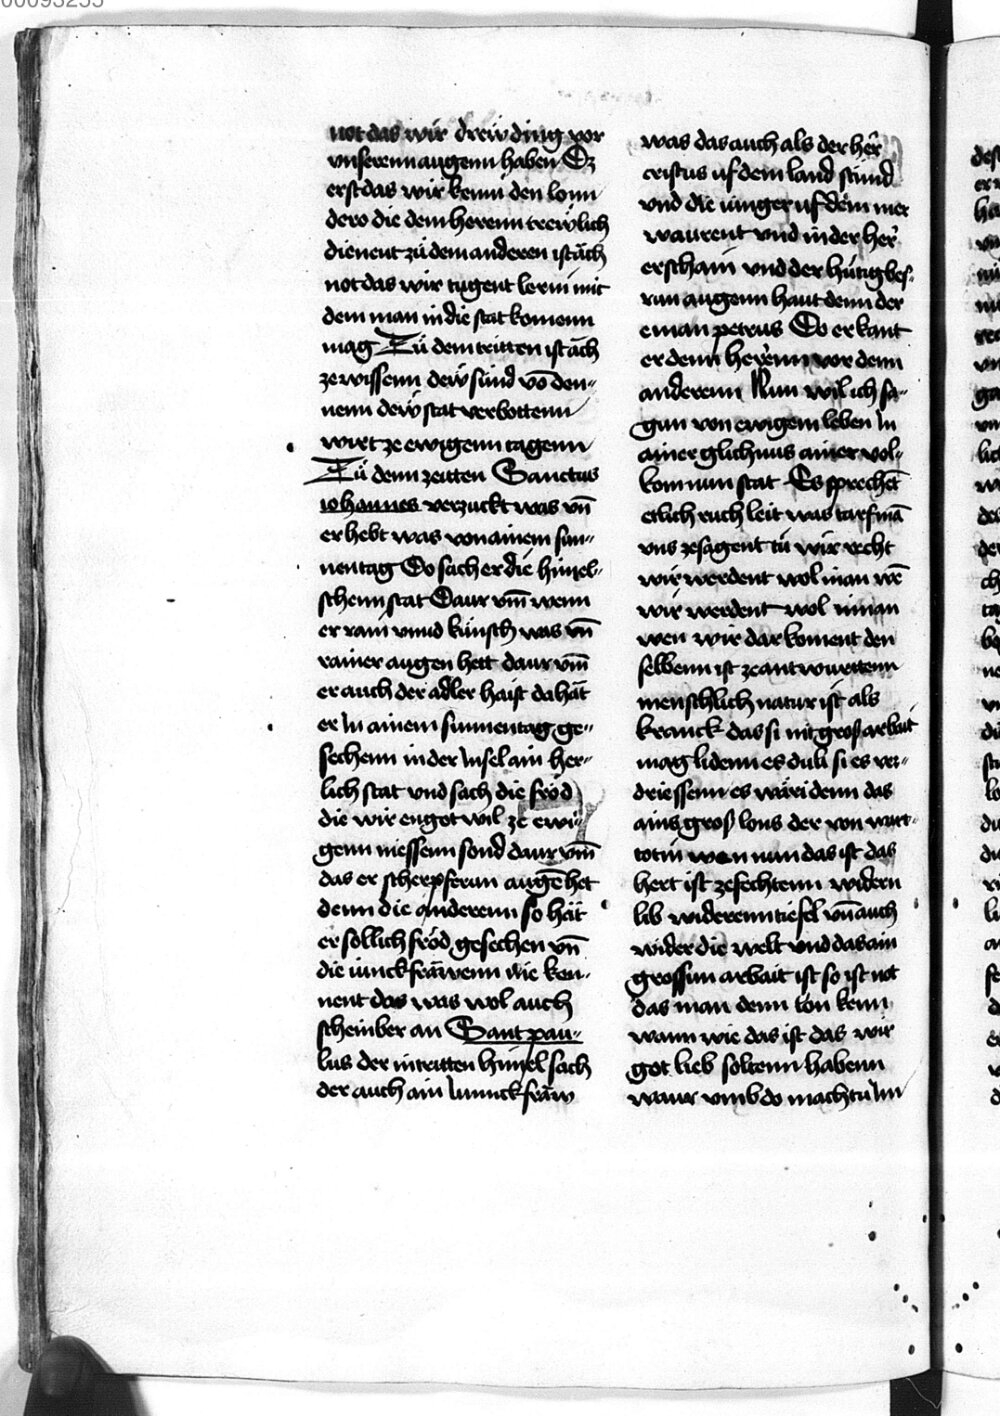 not das wir drew ding vor
vnserenn augenn haben Ez
erst das wir kenn den lonn
dero die dem herenn trewlich
dienent zü dem anderen ist ăch
not das wir tugent lerin mit
dem man in die stat komenn
mag Zü dem tritten ist ăch
ze wissenn dew sünd vō den-
nenn dew stat verbottenn
wirt ze ewigenn tagenn
Zü denn zeitten Sanctus
iohannes verzuckt was vn̄
er hebt was von ainem sun-
nentag Do sach er die himel-
schenn stat Daur vm̄ wenn
er rain vnnd künsch was vn̄
rainer augen hett daur vm̄
er auch der adler haist da hăt
er In ainem sunnentag ge-
sechenn in der Insel ain her-
lich stat vnd sach die fröd
die wir en got wil ze ewi-
genn niessenn sond daur vm̄
das er scherpferun augē het
denn die anderenn so hăt
er sollich fröd gesechen vn̄
die iunckfrăwenn wie ken-
nent das was wol auch
scheinber an Sant pau-
lus der in tritten himel sach
der auch ain Iunnckfrăw
was das auch als der her̄
cristus uf dem land stünd
vnd die iunger uf dem mer
waurent vnd in der her̄
erschain vnd der hüng bes-
run augenn haut denn der
eman petrus Do er kant
er denn herrenn vor denn
anderenn Nun wil ich sa-
gun von ewigem leben In
ainer glichnus ainer vol-
komnun stat Es sprechēt
etlich ruch leit was tarf mā
vns ze sagent tü wir recht
wir werdent wol man wē
wir werdent wol innan
wen wir dar koment den
selbenn ist ze antwurttenn
menschlich natur ist als
kranck das si nit gros arbait
mag lidenn es duli si es ver-
driessenn es wäri denn das
ains gros lons der von wart-
totin wen nun das ist das
hert ist ze fechtenn widern
lib widerenn tiefel vn̄ auch
wider die welt vnd das ain
grossun arbait ist so ist not
das man denn lön kenn
wann wie das ist das wir
got lieb soltenn habenn
waur vmb do macht ü Inn